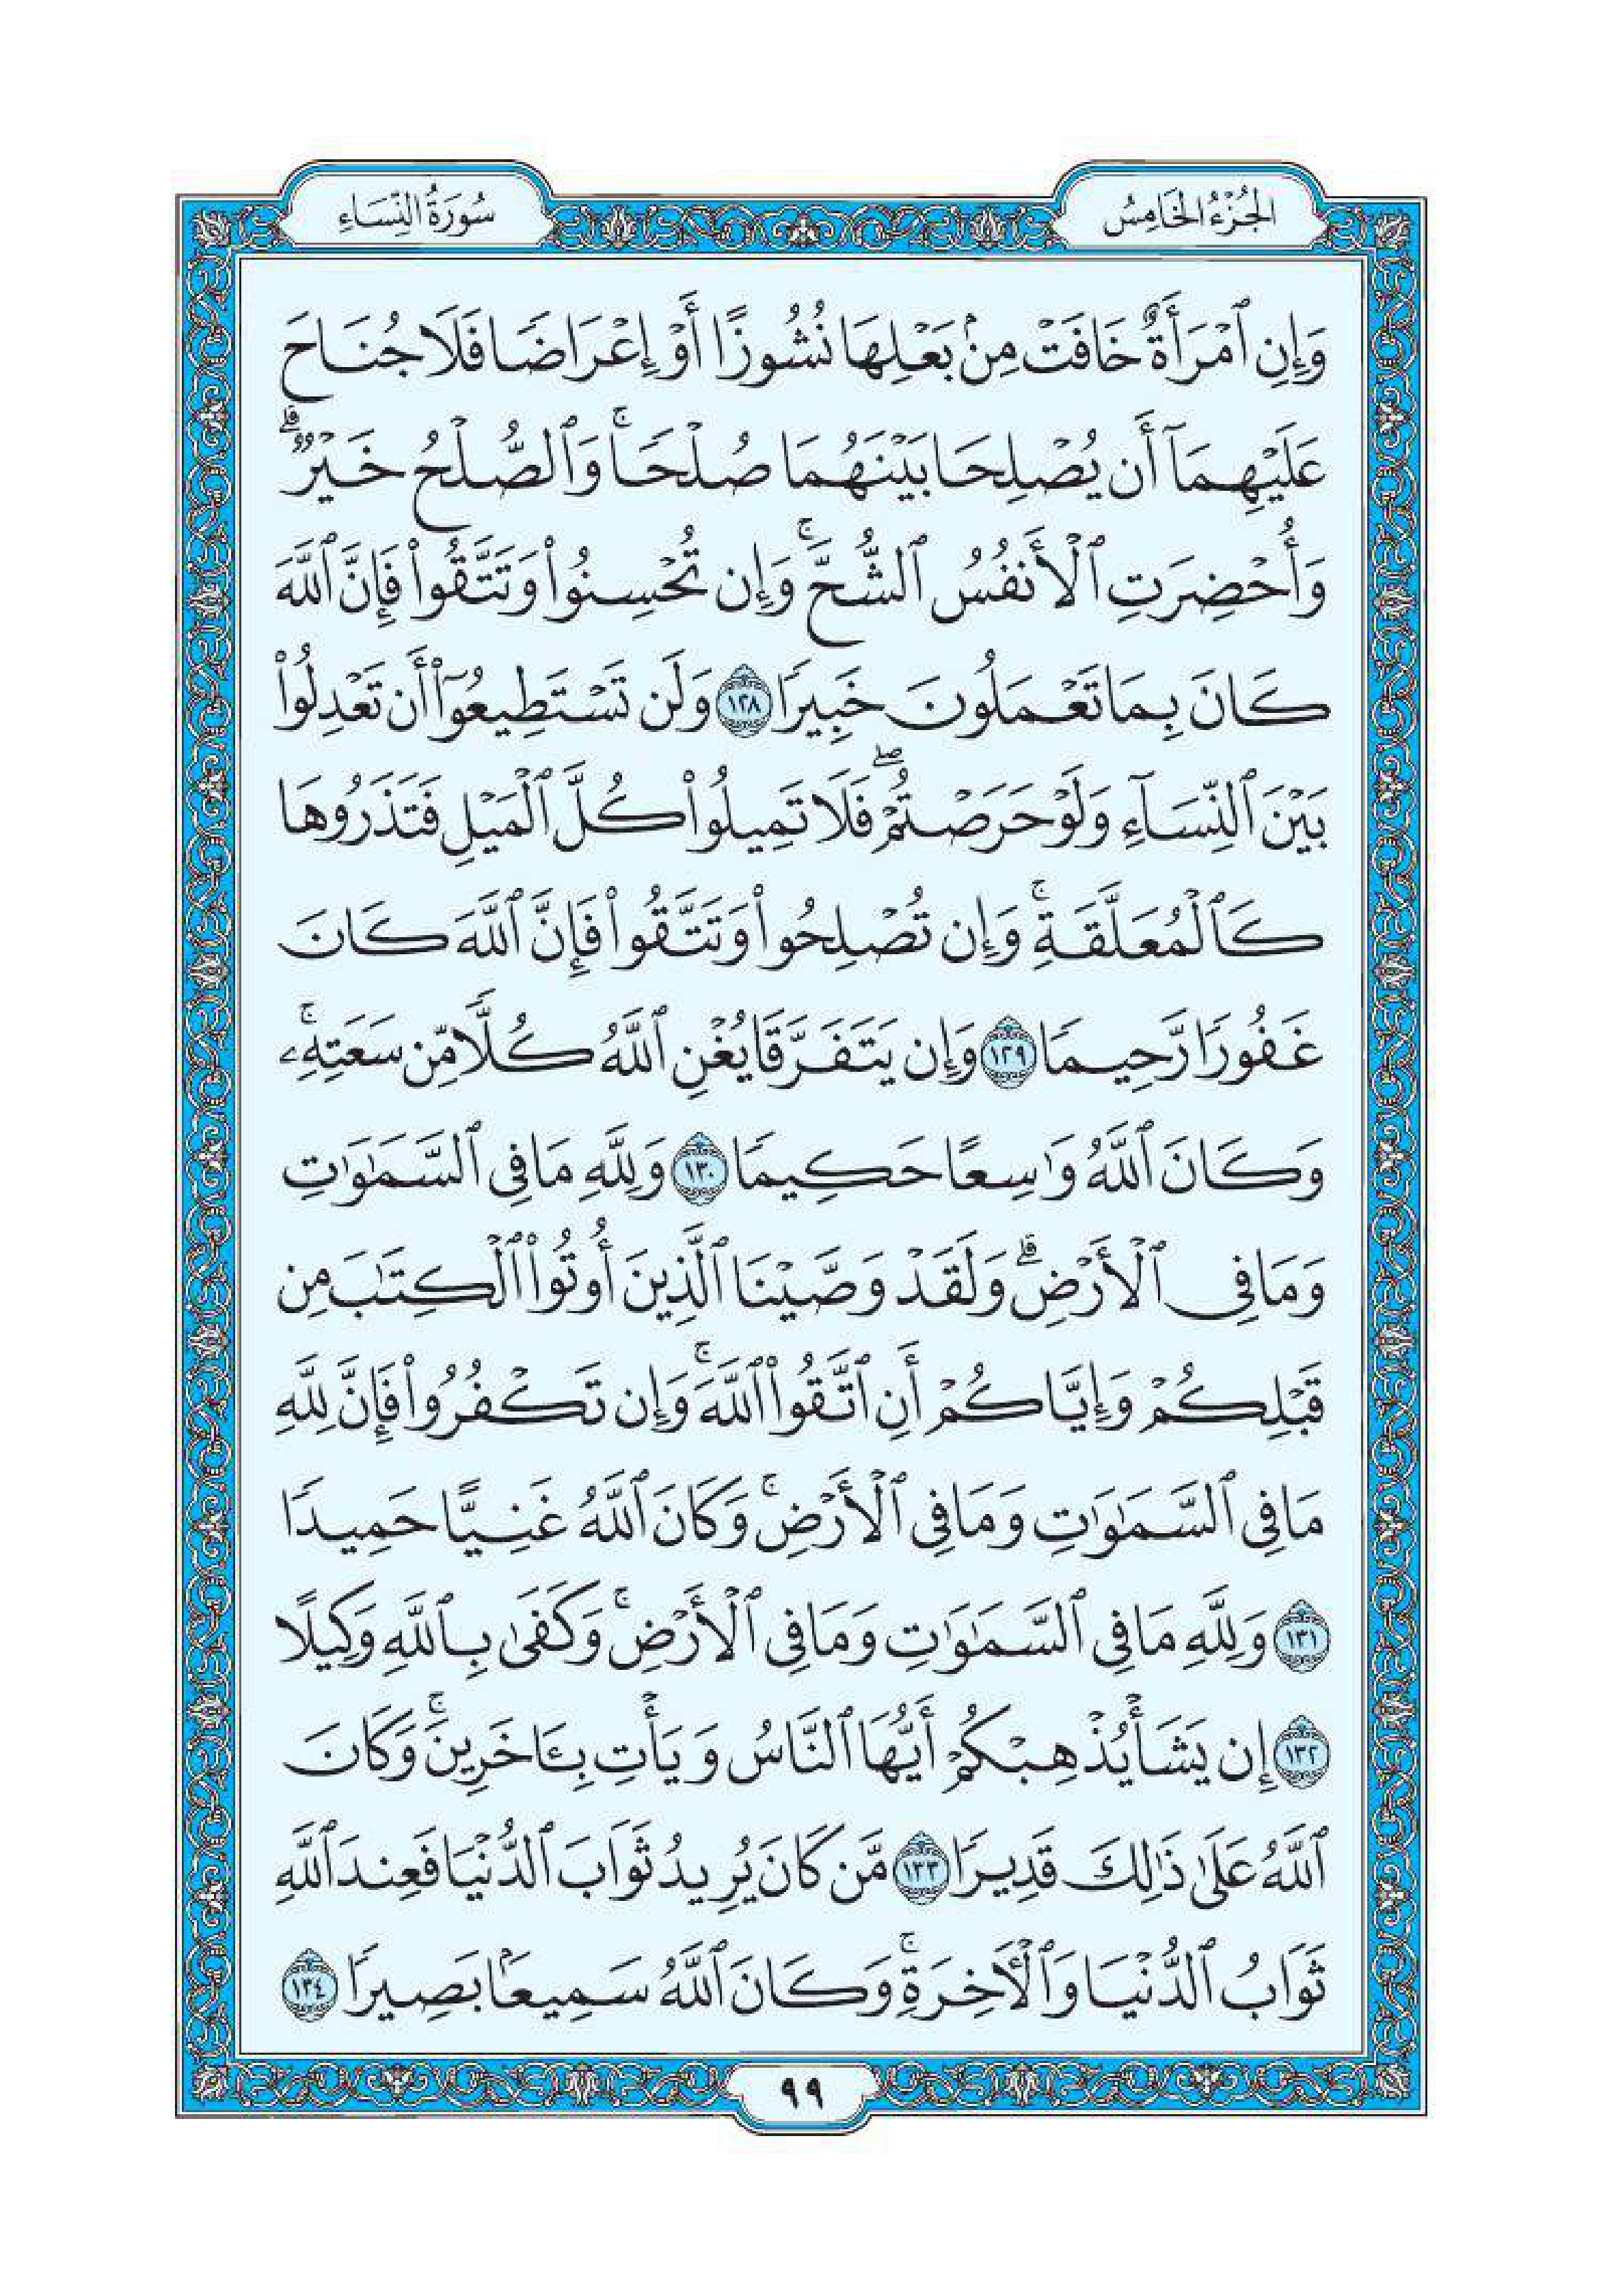 الجُزْءُ الخَامِسُ
سُورَةُ النِّسَاءِ
وَإِنِ ٱمْرَأَةٌ خَافَتْ مِنۢ بَعْلِهَا نُشُوزًا أَوْ إِعْرَاضًا فَلَا جُنَاحَ
عَلَيْهِمَآ أَن يُصْلِحَا بَيْنَهُمَا صُلْحًا ۚ وَٱلصُّلْحُ خَيْرٌ ۗ
وَأُحْضِرَتِ ٱلْأَنفُسُ ٱلشُّحَّ ۚ وَإِن تُحْسِنُوا۟ وَتَتَّقُوا۟ فَإِنَّ ٱللَّهَ
كَانَ بِمَا تَعْمَلُونَ خَبِيرًا ١٢٨ وَلَن تَسْتَطِيعُوٓا۟ أَن تَعْدِلُوا۟
بَيْنَ ٱلنِّسَآءِ وَلَوْ حَرَصْتُمْ ۖ فَلَا تَمِيلُوا۟ كُلَّ ٱلْمَيْلِ فَتَذَرُوهَا
كَٱلْمُعَلَّقَةِ ۚ وَإِن تُصْلِحُوا۟ وَتَتَّقُوا۟ فَإِنَّ ٱللَّهَ كَانَ
غَفُورًا رَّحِيمًا ١٢٩ وَإِن يَتَفَرَّقَا يُغْنِ ٱللَّهُ كُلًّا مِّن سَعَتِهِۦ ۚ
وَكَانَ ٱللَّهُ وَٰسِعًا حَكِيمًا ١٣٠ وَلِلَّهِ مَا فِى ٱلسَّمَٰوَٰتِ
وَمَا فِى ٱلْأَرْضِ ۗ وَلَقَدْ وَصَّيْنَا ٱلَّذِينَ أُوتُوا۟ ٱلْكِتَٰبَ مِن
قَبْلِكُمْ وَإِيَّاكُمْ أَنِ ٱتَّقُوا۟ ٱللَّهَ ۚ وَإِن تَكْفُرُوا۟ فَإِنَّ لِلَّهِ
مَا فِى ٱلسَّمَٰوَٰتِ وَمَا فِى ٱلْأَرْضِ ۚ وَكَانَ ٱللَّهُ غَنِيًّا حَمِيدًا
١٣١ وَلِلَّهِ مَا فِى ٱلسَّمَٰوَٰتِ وَمَا فِى ٱلْأَرْضِ ۚ وَكَفَىٰ بِٱللَّهِ وَكِيلًا
١٣٢ إِن يَشَأْ يُذْهِبْكُمْ أَيُّهَا ٱلنَّاسُ وَيَأْتِ بِـَٔاخَرِينَ ۚ وَكَانَ
ٱللَّهُ عَلَىٰ ذَٰلِكَ قَدِيرًا ١٣٣ مَّن كَانَ يُرِيدُ ثَوَابَ ٱلدُّنْيَا فَعِندَ ٱللَّهِ
ثَوَابُ ٱلدُّنْيَا وَٱلْأَخِرَةِ ۚ وَكَانَ ٱللَّهُ سَمِيعًۢا بَصِيرًا ١٣٤
٩٩